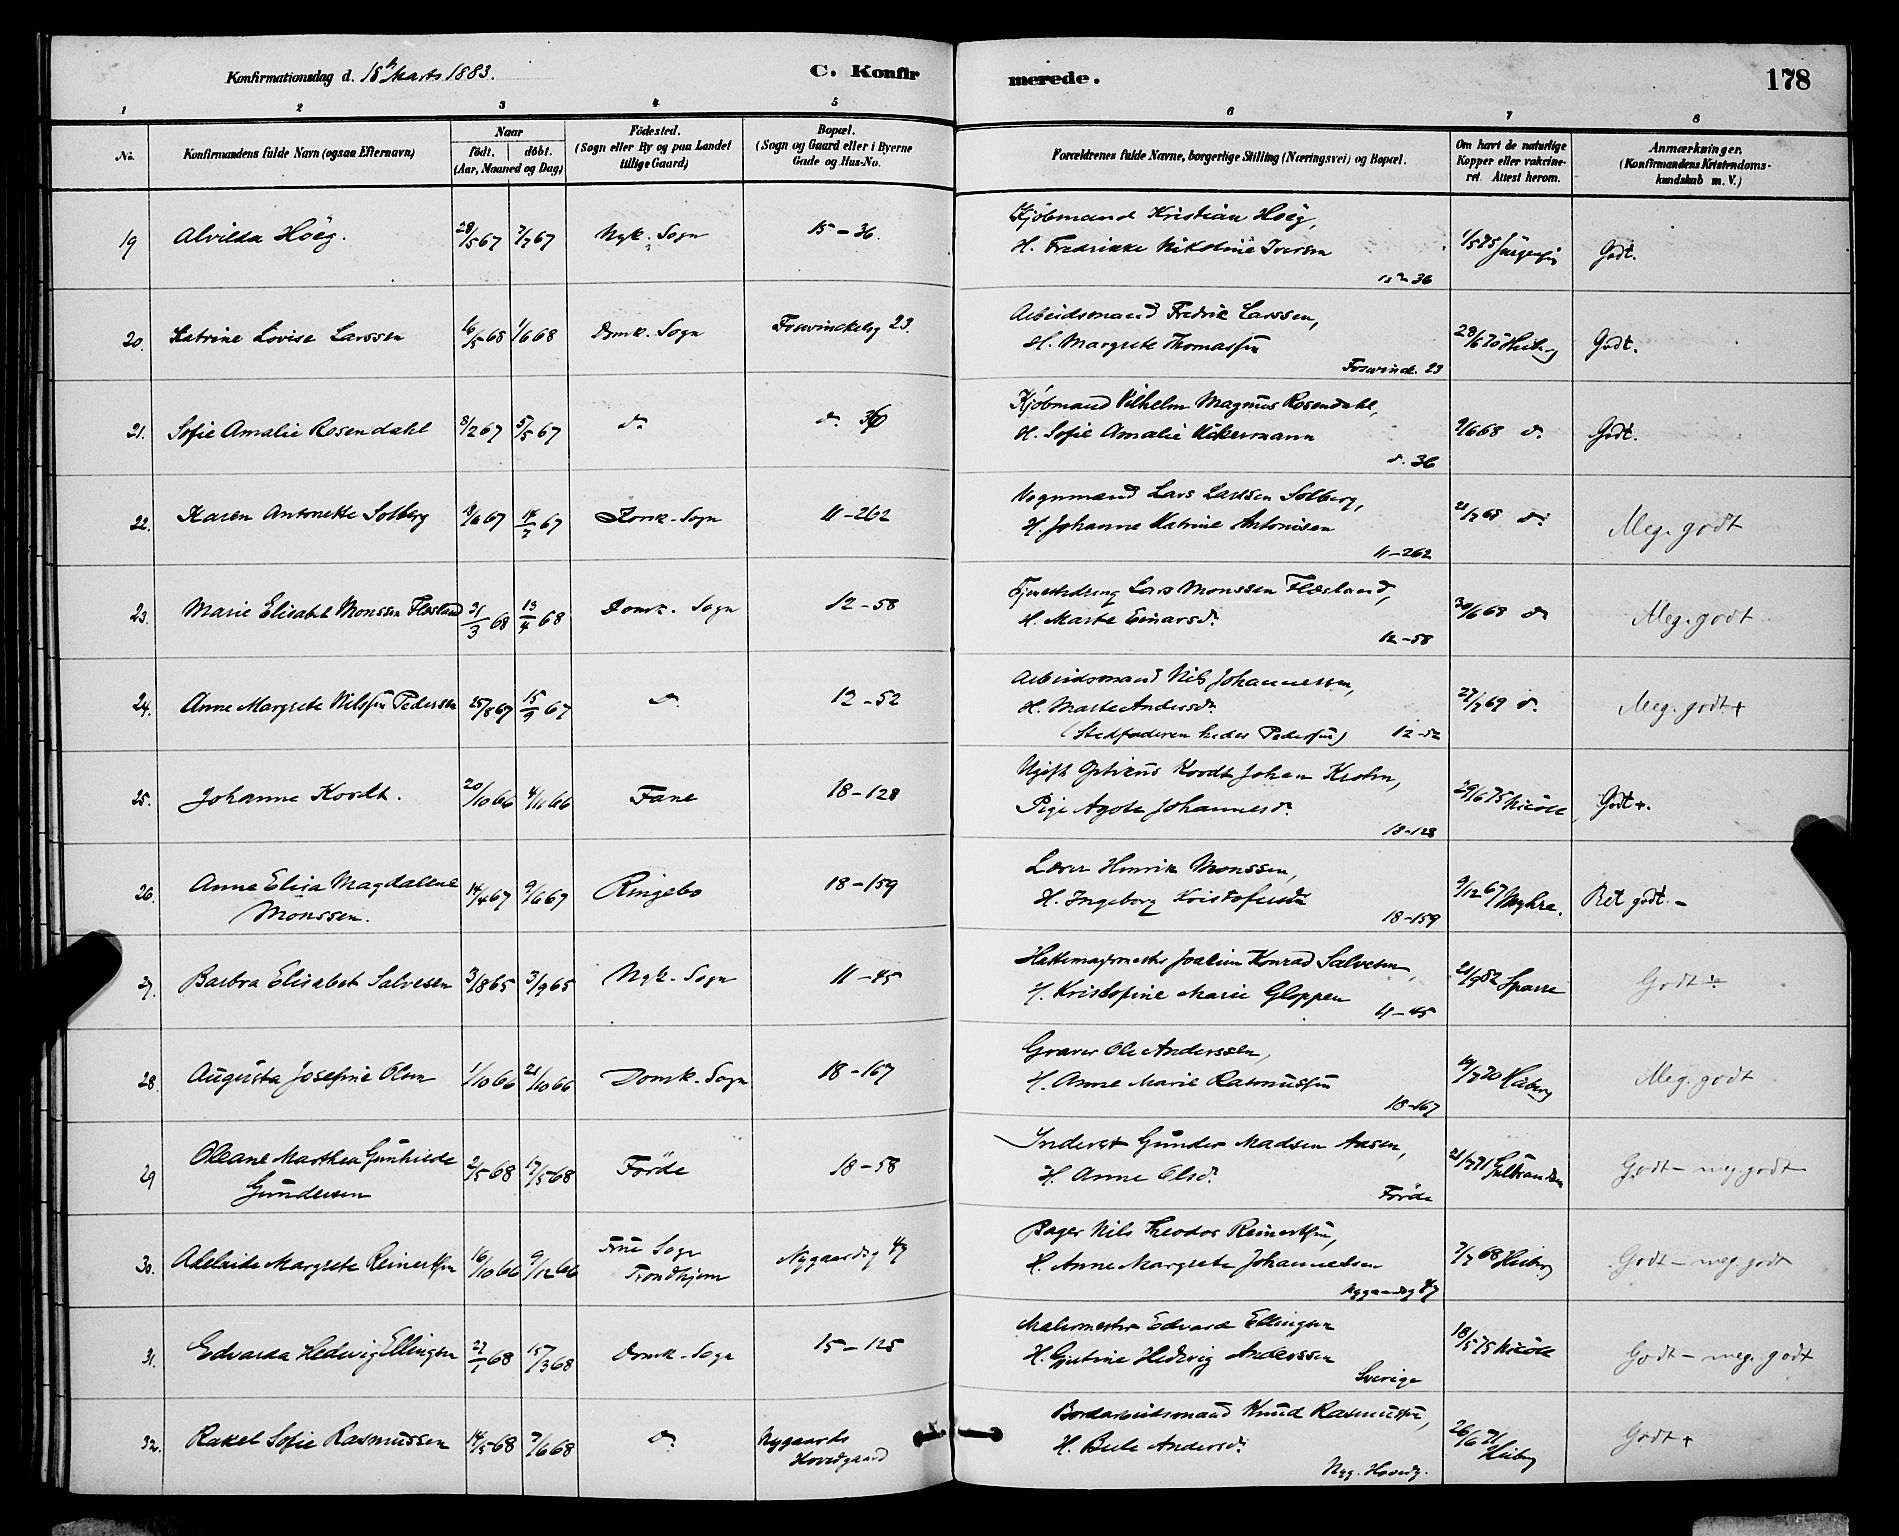 Konfirmationsdag d. 18de Marts 1883.
C. Konfirmerede.
178
1 2 3 4 5 6 7 8
No.
Konfirmandens fulde Navn (ogsaa Efternavn)
Naar
födt. döbt.
(Aar, Maaned og Dag)
Födested.
(Sogn eller By og paa Landet
tillige Gaard)
Bopæl.
(Sogn og Gaard eller i Byerne
Gade og Hus-No.
Forældrenes fulde Navne, borgerlige Stilling (Næringsvei) og Bopæl.
Om havt de naturlige
Kopper eller vakcine-
ret. Attest herom.
Anmærkninger.
(Konfirmandens Kristendoms-
kundskab m. V.)
19 Alvilda Höeg. 28/5 67 7/7 67 Nyk. Sogn 15-36. Kjöbmand Kristian Höeg,
H. Fredrikke Nikoline Iversen 1/5 75 Godt.
15-36
20. Katrine Lovise Larssen 16/5 68 1/6 68 Domk. Sogn 23. Arbeidsmand Fredrik Larssen,
H. Margrete Thomassen 28/6 70 Heiberg Godt.
23
21. Sofie Amalie Rosendahl 8/2 67 5/5 67 do do 36 Kjöbmand Vilhelm Magnus Rosendahl,
H. Sofie Amalie Ückermann 9/6 68 do Godt.
d. 36
22. Karen Antonette Solberg 8/6 67 14/7 67 Domk. Sogn 11-262 Vognmand Lars Larssen Solberg,
H. Johanne Katrine Antonisen 21/7 68 do Meg. godt
11-262
23. Marie Elisabet Monssen Flesland 31/3 68 13/4 68 Domk. Sogn 12-58 Lars Monssen Flesland,
H. Marte Einarsdr 30/6 68 do Meg. godt
12-58
24. Anne Margrete Nilssen Pedersen 25/8 67 15/9 67 do 12-52 Arbeidsmand Nils Johannessen,
H. Marte Andersdr 27/7 69 do Meg. godt +
(Stedfaderen heder Pederssen) 12-52
25. Johanne Kordt. 20/10 66 4/11 66 Fane 18-128 Ugift Kordt Johan Krohn,
Pige Agote Johannesdr. 29/6 75 Godt +.
18-128
26. Anne Elisa Magdalene 14/4 67 9/6 67 Ringebo 18-159 Lærer Henrik Monssen,
Monssen. H. Ingeborg Kristofersdr 9/12 67 Myhre. Ret godt. -
18-159
27. Barbra Elisabet Salvesen 3/8 65 3/9 65 Nyk. Sogn 11-45 Hattemagermester Joakim Konrad Salvesen,
H. Kristofine Marie Gloppen 21/9 82 Sparre Godt
11-45
28. Augusta Josefine Olsen 1/10 66 21/10 66 Domk. Sogn 18-167 Graver Ole Anderssen,
H. Anne Marie Rasmussen 19/7 70 Heiberg Meg. godt
18-167
29 Oleane Marthea Gunhilde 2/5 68 17/5 68 Förde 18-58 Inderst Gunder Madsen Aasen,
Gundersen H. Anne Olsdr. 21/7 71 Gulbrandsen Godt - meg. godt
Förde
30. Adelaide Margrete Reinertsen 16/10 66 9/12 66 Frue Sogn
Trondhjem Nygaardsg 47 Bager Nils Theodor Reinertsen,
H. Anne Margrete Johannessen 7/7 68 Heiberg Godt - meg. godt
Nygaardsg 47
31. Edvarda Hedevig Ellingsen 27/1 68 15/3 68 Domk. Sogn 15-125 Malermester Edvard Ellingsen
H. Gjertine Hedevig Anderssen 18/5 75 Godt - meg. godt
Sverige
32. Rakel Sofie Rasmussen 14/5 68 7/6 68 do Nygaards
Hovedgaard Bordarbeidsmand Knud Rasmussen,
H. Bele Andersdr 26/6 71 Heiberg Godt +
Nyg. Hovedg.